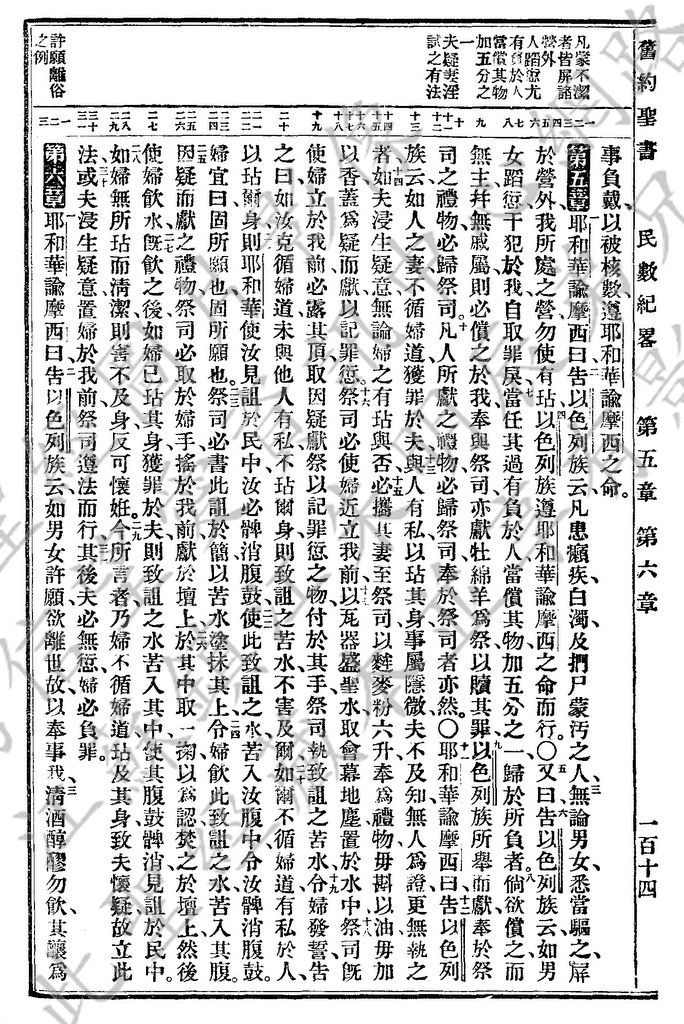 舊約聖書 民數紀畧 第五章 第六章 一百十四
凡蒙不潔
者皆屏諸
營外
人蹈愆尤
有負於人
當償其物
加五分之
一
夫疑妻淫
試之有法
許願離俗
之例
事負戴、以被核數、遵耶和華諭摩西之命。
第五章 一耶和華諭摩西曰、二告以色列族云、凡患癩疾白濁、及捫尸蒙汚之人、三無論男女、悉當驅之、屛
於營外、我所處之營、勿使有玷、四以色列族遵耶和華諭摩西之命而行。〇五又曰、六告以色列族云、如男
女蹈愆、干犯於我、自取罪戾、七當任其過、有負於人、當償其物、加五分之一、歸於所負者、八倘欲償之、而
無主、幷無戚屬、則必償之於我、奉與祭司、亦獻牡綿羊爲祭、以贖其罪、九以色列族所舉而獻奉於祭
司之禮物、必歸祭司。十凡人所獻之禮物、必歸祭司、奉於祭司者亦然。〇十一耶和華諭摩西曰、十二告以色列
族云、如人之妻、不循婦道、獲罪於夫、十三與人有私、以玷其身、事屬隱微、夫不及知、無人爲證、更無執之
者、十四如夫浸生疑意、無論婦之有玷與否、十五必攜其妻至祭司、以麰麥粉六升、奉爲禮物、毋斟以油、毋加
以香、蓋爲疑而獻、以記罪愆、十六祭司必使婦近立我前、十七以瓦器盛聖水、取會幕地塵、置於水中、十八祭司旣
使婦立於我前、必露其頂、取因疑獻祭、以記罪愆之物、付於其手、祭司執致詛之苦水、十九令婦發誓、告
之曰、如汝克循婦道、未與他人有私、不玷爾身、則致詛之苦水、不害及爾、二十如爾不循婦道、有私於人、
以玷爾身、二一則耶和華使汝見詛於民中、汝必髀消腹鼓、二二使此致詛之水、苦入汝腹中、令汝髀消腹鼓。
婦宜曰、固所願也、固所願也。二三祭司必書此詛於簡、以苦水塗抹其上、二四令婦飲此致詛之水、苦入其腹。
二五因疑而獻之禮物、祭司必取於婦手、搖於我前、獻於壇上、二六於其中取一掬、以爲記、焚之於壇上、然後
使婦飲水、二七旣飲之後、如婦已玷其身、獲罪於夫、則致詛之水、苦入其中、使其腹鼓髀消、見詛於民中。
二八如婦無所玷而淸潔、則害不及身、反可懷姙。二九今所言者、乃婦不循婦道、玷及其身、三十致夫懷疑、故立此
法、或夫浸生疑意、置婦於我前、祭司遵法而行、三一其後夫必無愆、婦必負罪。
第六章 一耶和華諭摩西曰、二告以色列族云、如男女許願欲離世故、以奉事我、三淸酒醇醪勿飲、其釀爲